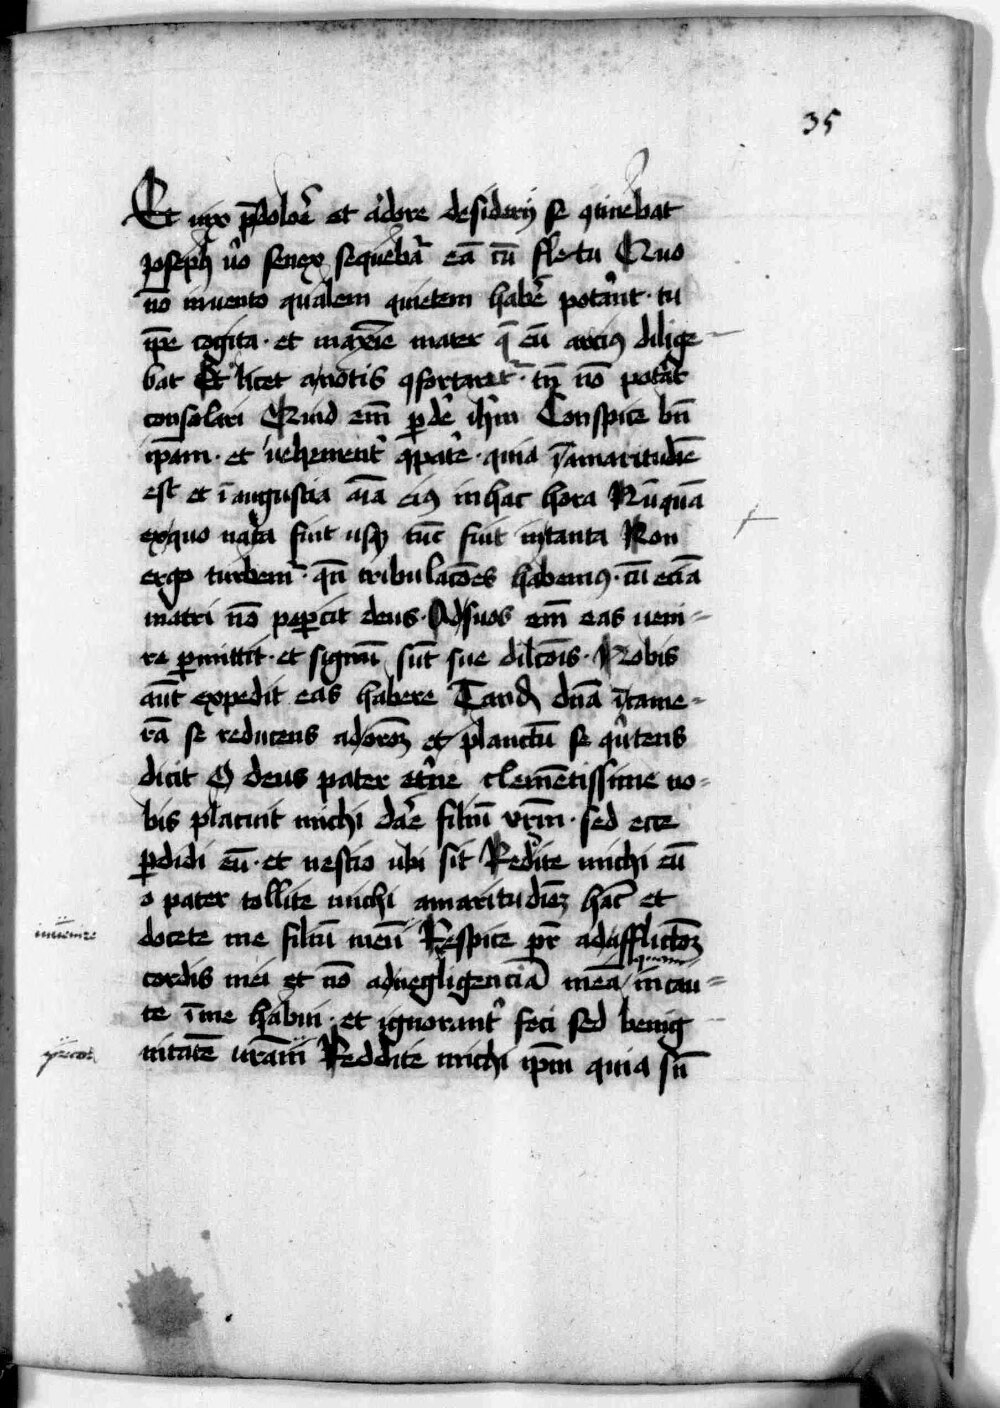 35
Et vix p̄ doloꝛē et aꝛdore desiderij se ꝯtinebat
Joseph v̊o senex sequebat̉ eā cū fletu Quo
nō invento qualem quietem habē̉ potⁱnt · tu
ip̄e cogita · et maxīe mater q̄ eū arciꝰ dilige-
bat Et licet a notis ꝯfortaret̉ · tn̄ nō pot̉at
consolari Quid em̄ ꝑdē̉ ih̄m Conspice bn̄
ip̄am · et vehement̉ ꝯpatē̉ · quia ī amaritudīe
est et ī angustia aīa eiꝰ in hac hora Nūquā
ex quo nata fuit usqꝫ tūc fuit in tanta Non
ergo turbem̉ · qn̄ tribulacōes habemꝰ · cū eciā
matri nō peꝑcit deus · Ad suos em̄ eas veni=
re ꝑmittit · et signū sūt sue dilcōis · Nobis
aūt expedit eas habere Tandē dn̄a ī came=
rā se reducens ad orōꝫ et planctū se ꝯ̉utens
dicit O deus pater et̉ne clemētissime vo=
bis placuit michi daē̉ filiū vrm̄ · sed ecce
ꝑdidi eū · et nescio ubi sit Reddite michi eū
o pater tollite michi amaritudīeꝫ hāc et
invenire
docete me filiū meū Respice pr̄ ad afflictōꝫ
quamvis
cordis mei et nō ad negligenciā meā / incau=
te ī me habui · et ignorant̉ feci sed benig
nitatē vrām Reddite michi ip̄m quia sn̄